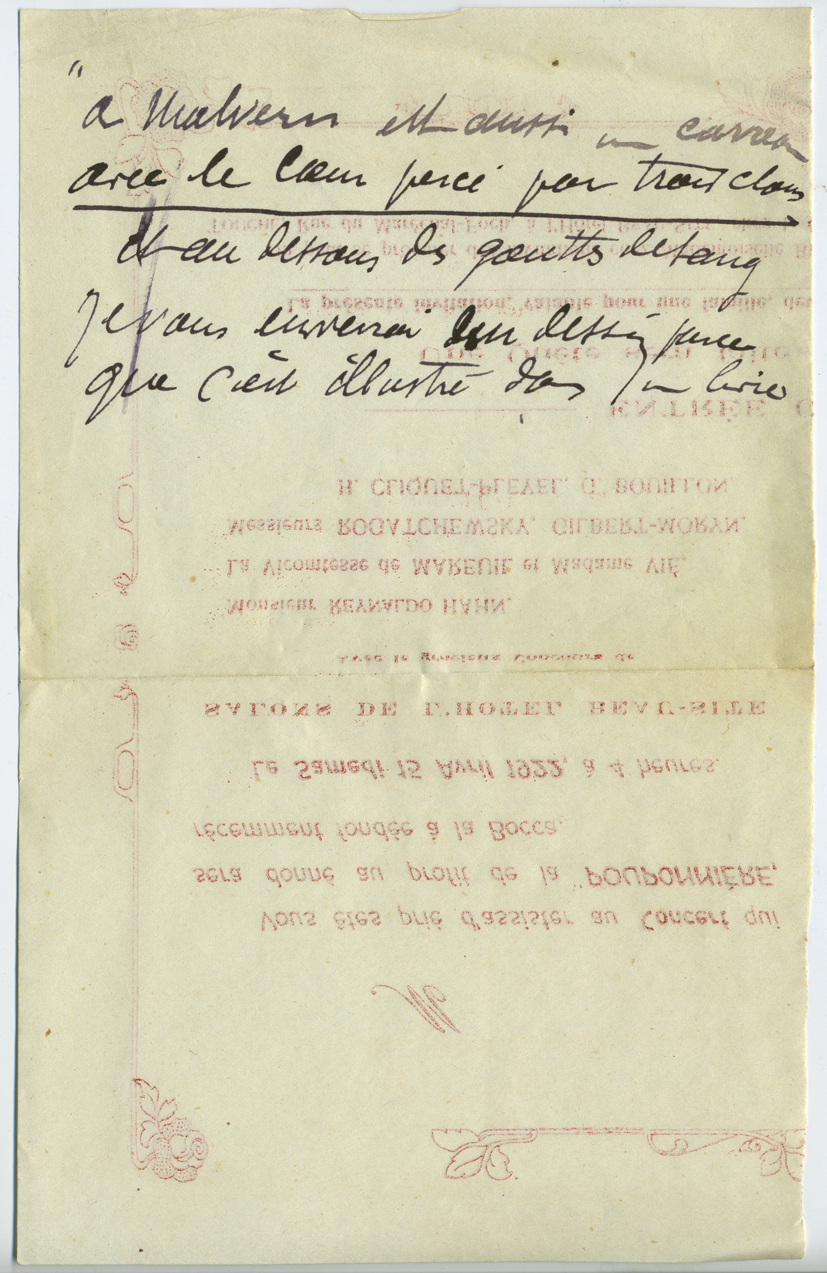 "
a Malvern est aussi un carreau
avec le Cœur percé par trois clous
et au dessous des gouttes de sang
Je vous enverrai un dessin parce
que c'est illustré dans un livre
M
Vous êtes prié d'assister au Concert qui
sera donné au profit de la "POUPONNIÈRE,
récemment fondée à la Bocca.
Le Samedi 15 Avril 1922, à 4 heures.
SALONS DE L'HOTEL BEAU-SITE
Avec le gracieux concours de
Monsieur REYNALDO HAHN,
La Vicomtesse de MAREUIL et Madame VIÉ,
Messieurs ROGATCHEWSKY, GILBERT-MORYN,
H. CLIQUET-PLEYEL, G. BOUILLON.
ENTRÉE
Une Quête sera faite
La présente invitation, valable pour une famille, de
Rue du Maréchal-Foch, à l'Hôtel Beau-Site